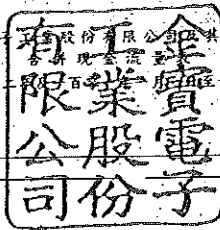 業股份有限公司及其
合併現金流量表
金寶電子
工業股份
有限公司